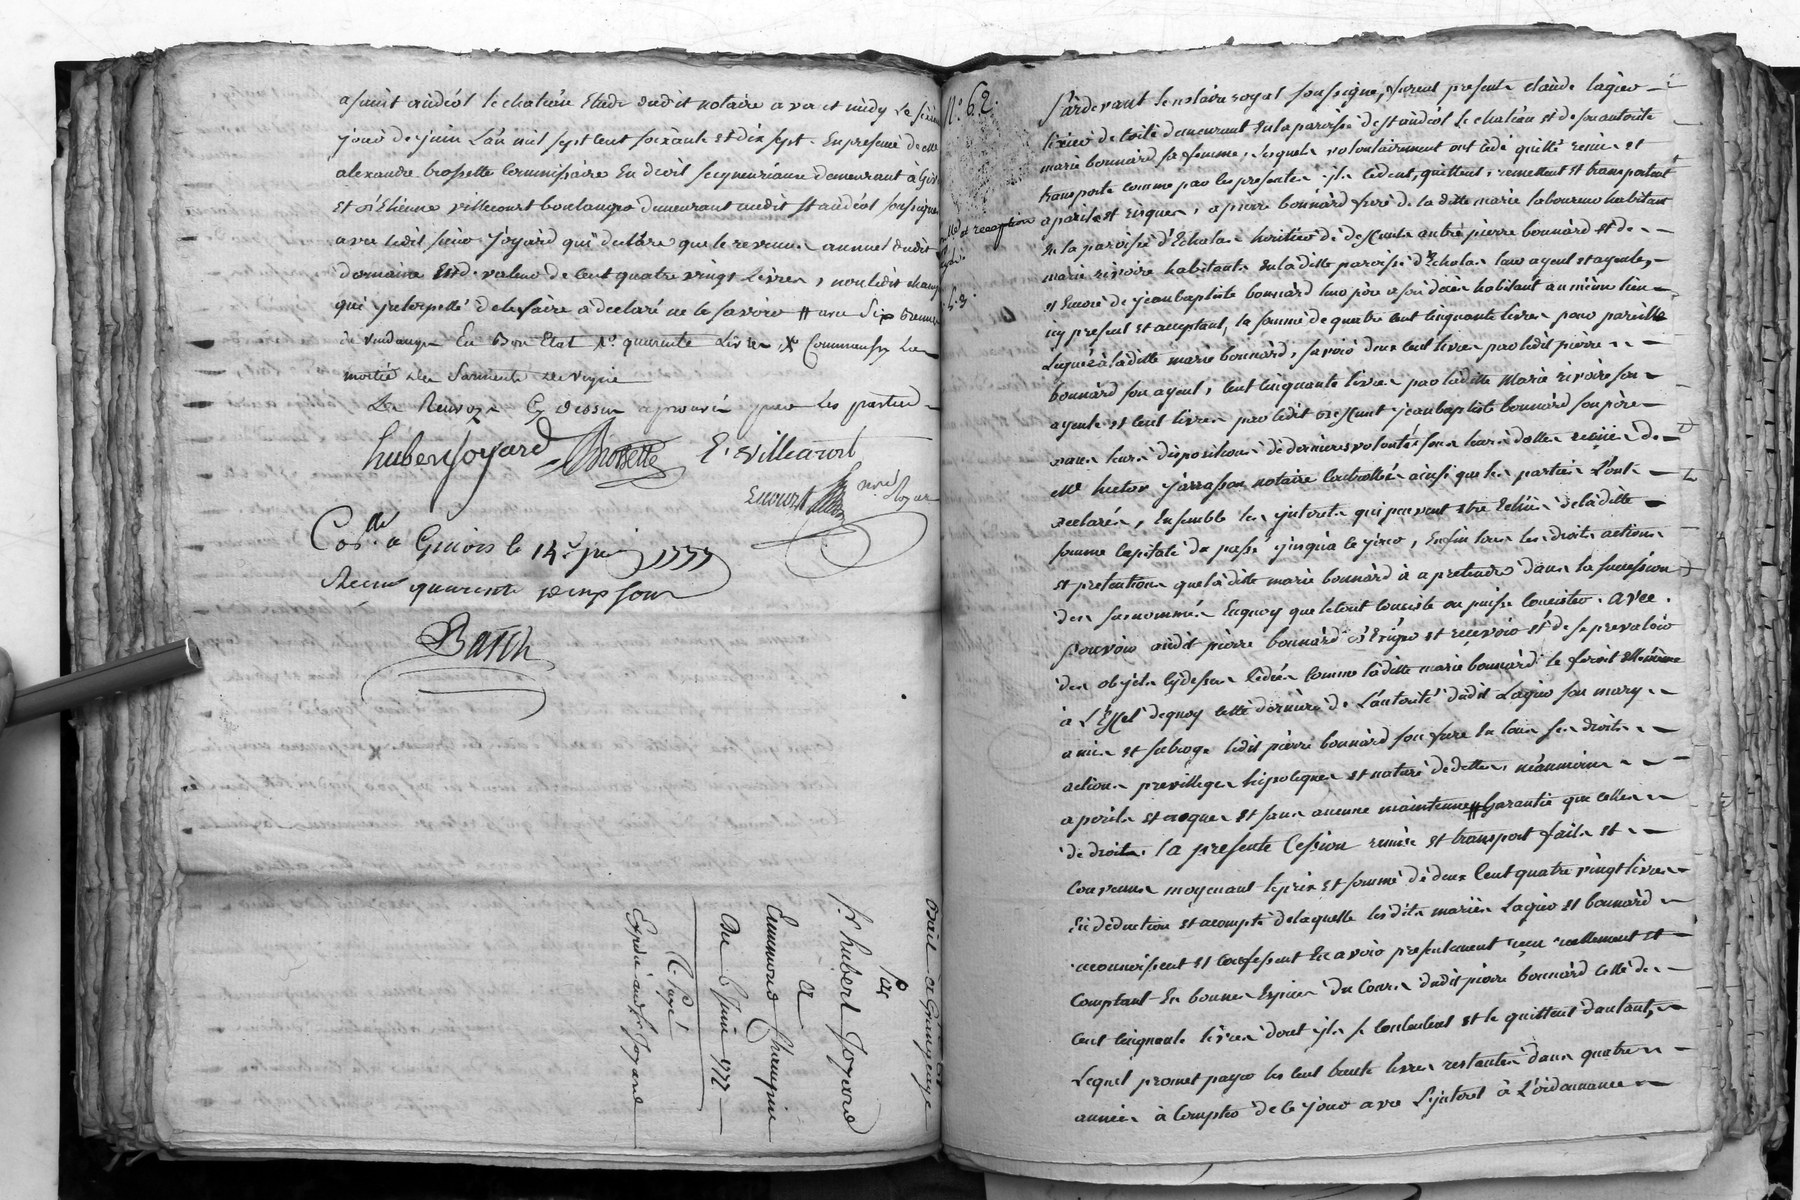 a saint andéol le chateau Etude dudit notaire avant midy le sixieme
jour de juin L'an mil sept cent soixante et dix sept En presence de me
alexandre brossette Commissaire En droit seigneuriaux demeurant à Givors
et sr Etienne villecourt boulanger demeurant audit st andéol soussignés
avec ledit sieur joyard qui declare que le revenu annuel dudit
domaine Est de valeur de cent quatre vingt Livres, non ledit champ
qui jnterpellé de le faire a declaré ne le savoir # avec Six bennes
de vendange En Bon Etat
moitié des Sarments de vigne
Le Renvoye Cy dessus aprouvé par les parties
hubert joyard Brossette E. Villecourt
Colé a Givors le 14e juin 1777
Recu quarente
Baron
Bail à Grangeage
Par
Sr hubert Joyard
A
Emmond Champin
Du 6 Juin 1777
Expédié audt Sr Joyard
No. 62.
et reception
Pardevant le notaire royal soussigné, furent presents claude laquer
tixier de toile demeurant En la paroisse de st andéol le chateau et de son autorité
marie bonnard sa femme, lesquels volontairement ont cédé quitté remis et
transporté comme par les presentes ils cedent, quittent, remettent et transportent
a perils et risques, a pierre bonnard frere de la ditte marie laboureur habitant
En la paroisse d'Echalas heritier de deffunts autre pierre bonnard et de
marie rivoire habitants En la ditte paroisse d'Echalas leurs ayeul et ayeule,
et Encore de jean baptiste bonnard leur père a son décès habitant au même lieu
cy present et acceptant, la somme de quatre cent cinquante livres pour pareille
leguée à la ditte marie bonnard, savoir deux cent livres par ledit pierre
bonnard son ayeul, cent cinquante livres par laditte Marie rivoire son
ayeule et cent livres par ledit deffunt jean baptiste bonnard son père
dans leurs dispositions de dernieres volontés sous leurs dattes reçües de
Me hector jarasson notaire controllées ainsi que les parties L'ont
declaré, Ensemble les jnterets qui peuvent etre Echus de la ditte
somme capitale du passé jusqu'a ce jour, Enfin tous les droits actions
et pretentions que la ditte marie bonnard a a pretendre dans la succession
des susnommés En quoy que le tout consiste ou puisse consister. avec
pouvoir audit pierre bonnard d'Exiger et recevoir et de se prevaloir
des objets cy dessus cédés comme la ditte marie bonnard le feroit Elle même
à L'Effet de quoy cette derniere de L'autorité dudit Laquer son mary
a mis et subrogé ledit pierre bonnard son frere En tous ses droits
actions previlleges hipoteques et nature de dettes, néanmoins
a perils et risques et sans aucune maintenue # Garantie que celles
de droit. La presente Cession remise et transport faits et
convenus moyenant le prix et somme de deux Cent quatre vingt livres
En deduction et acompte de laquelle lesdits mariés Laquer et bonnard
reconnoissent et confessent En avoir presentement reçu réellement et
Comptant En bonnes Especes du Cours dudit pierre bonnard celle de
cent cinquante livres dont ils se contentent et le quittent d'autant,
Lequel promet payer les cent trente livres restantes dans quatre
années à compter de ce jour avec L'jnteret à L'ordonnance